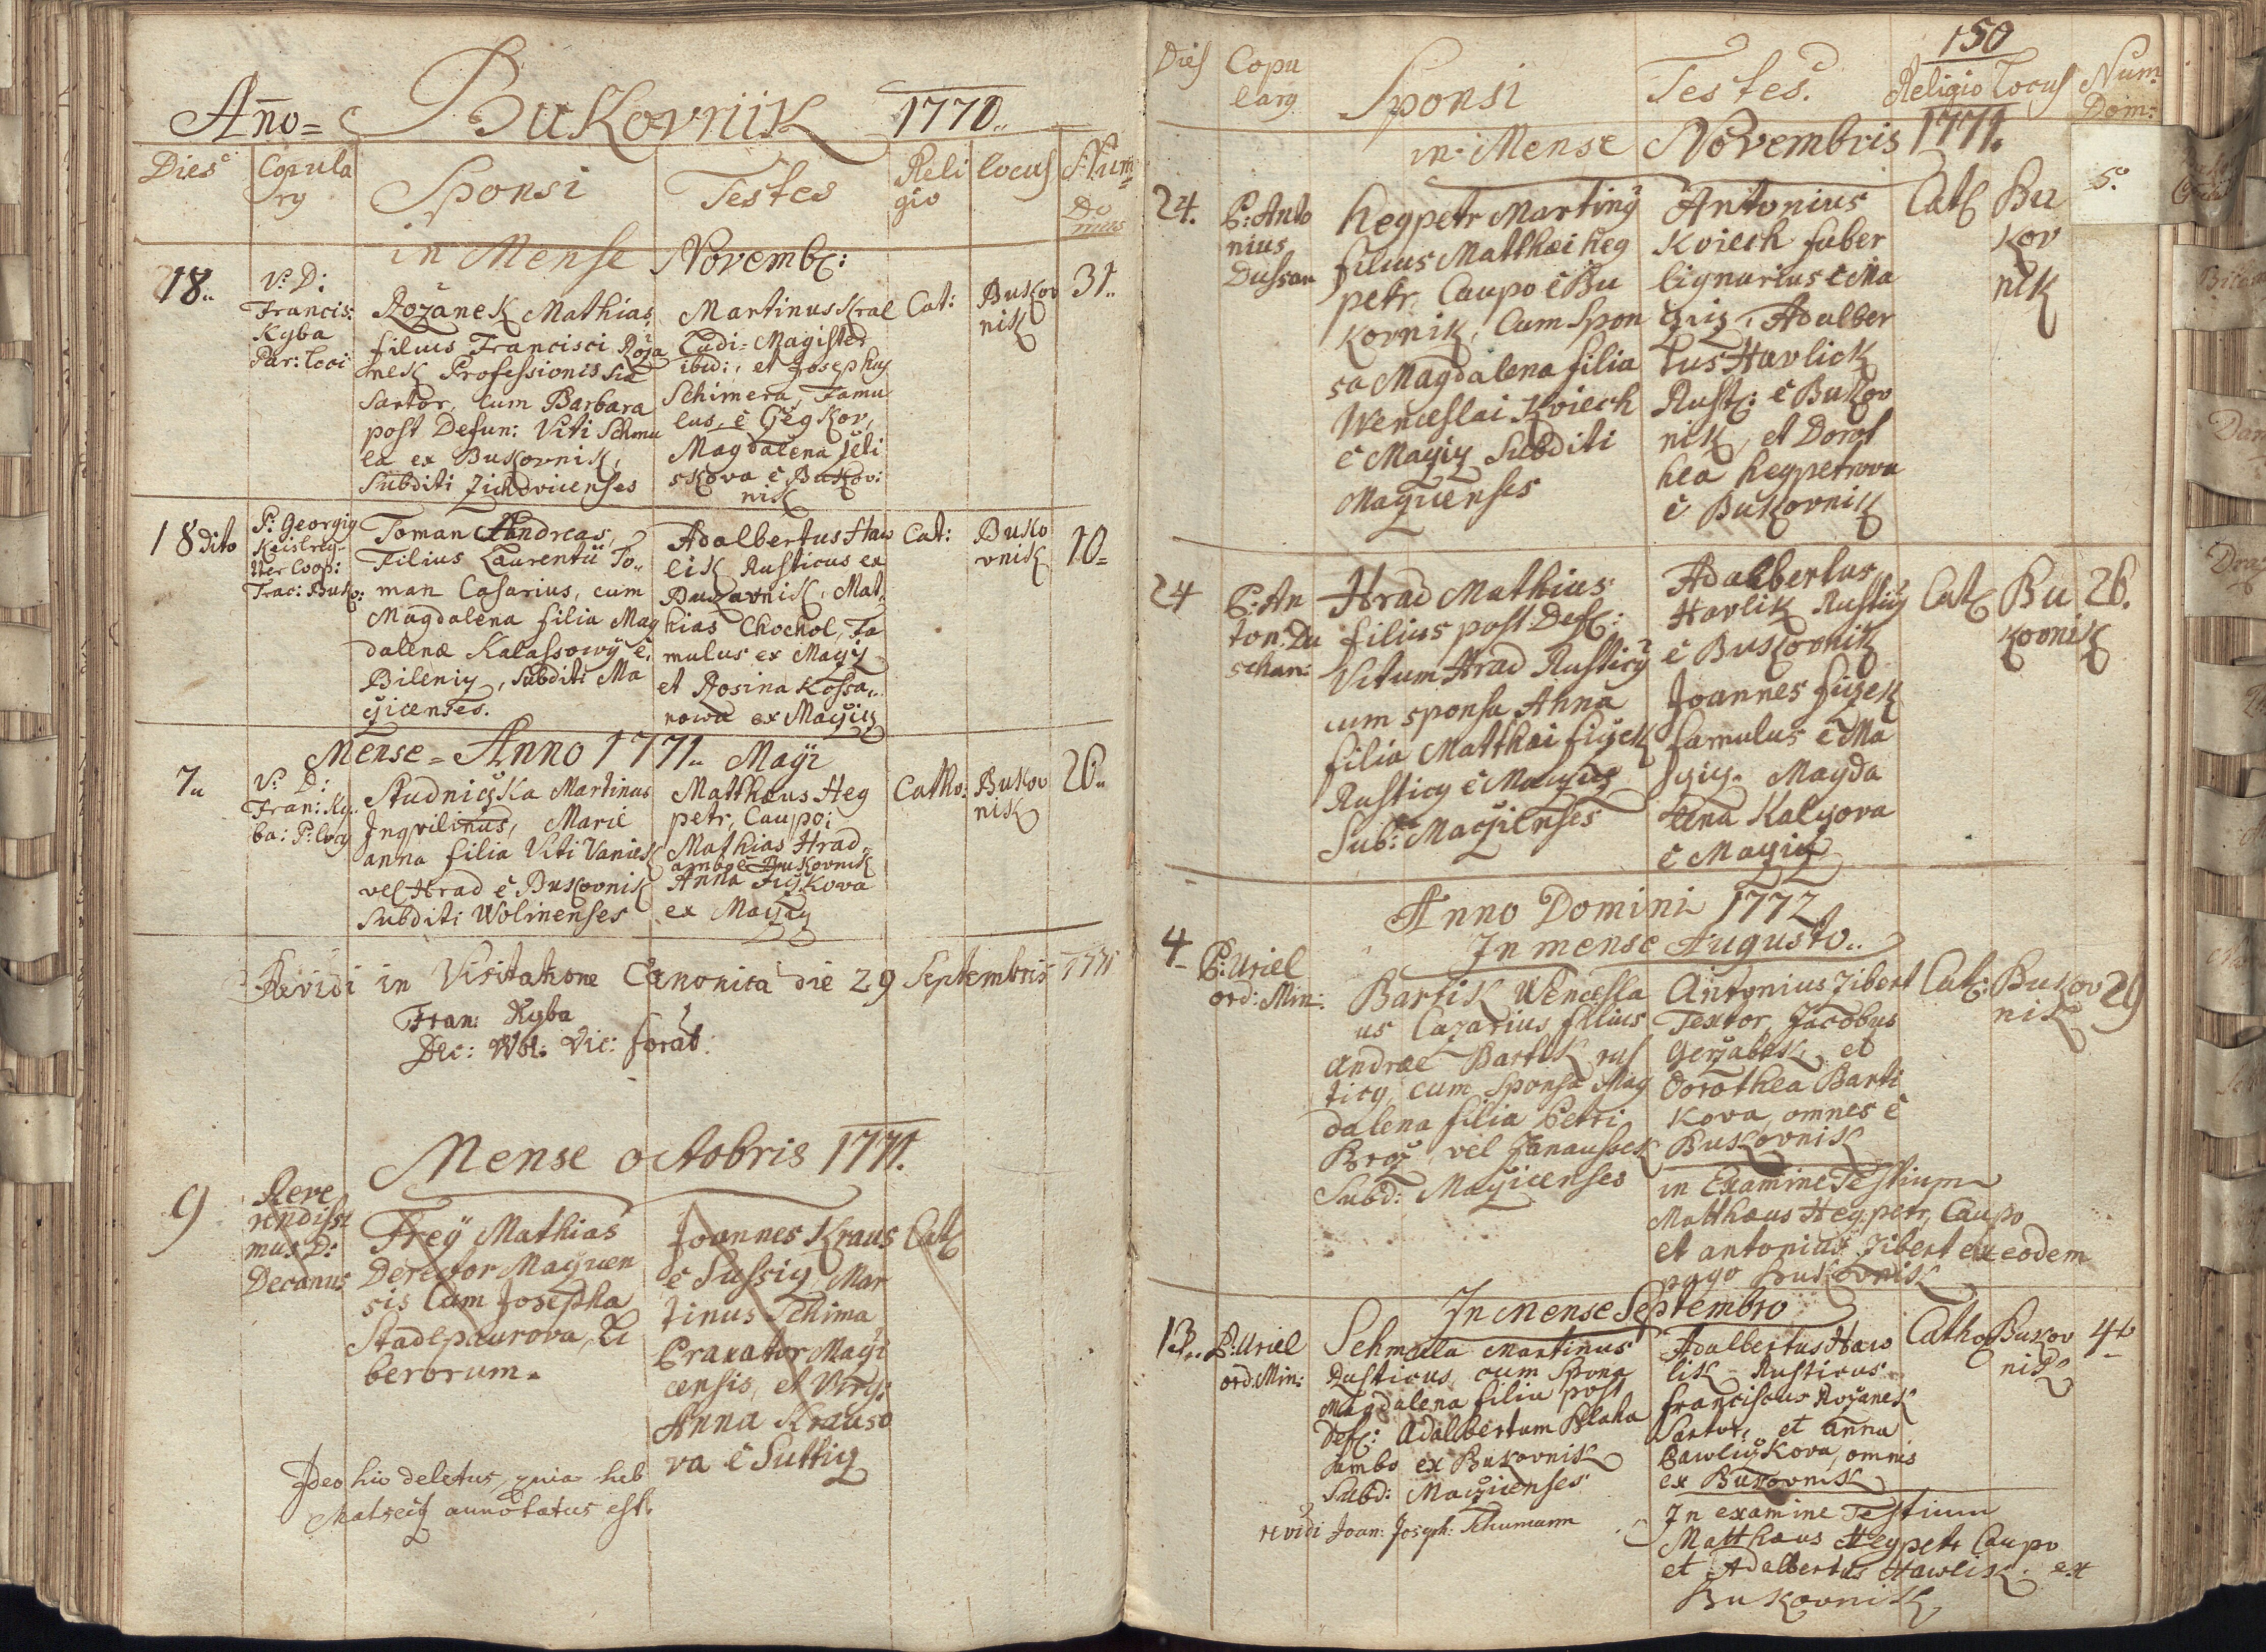 Año = Bukovnik 1770..
Dies Copula Sponsi Testes Reli locus Num
rg gio Do
mus
in Mense Novemb:
18.. V: D: Francis: Kyba Par: loci
Rozanek Mathias,
filius Francisci Roza
nek Professionis suae
Sartor, cum Barbara
post Defun: Viti Schmu
la ex Bukovnik,
Subditi Zichovicenses
Martinus Kral
Ludi = Magister
ibid:, et Josephus
Schimera, Famu
lus, è Geg Kov,
Magdalena Jeli
skova è Bukov:
nik
Cat: Bukov
nik
31..
18 dito P: Georgig
Ter Coop:
Toman Andreas,
Filius Laurentii To..
man Casarius, cum
Magdalena filia Mag
dalenæ Kalassowÿ è
Bileniy, Subditi Ma
çjicenses.
Adalbertus Haw
lik Rusticus ex
Bukovnik, Mat
hias Chochol, Fa
mulus ex Maçjiy
et Rosina Kossa..
nowa ex Maçjicz
Cat: Buko
vnik
10=
Mense = Anno 1771.. Mayi
7.. V: D:
Fran: Ky..
ba: P: locy
Studniçzka Martinus
Jnqvilinus, Marie
anna filia Viti Vaniek
vel Hrad è Bukovnik
Subditi Wolinenses
Matthæus Heg
petr, Caupo;
Mathias Hrad
ambo è Bukovnik
Anna Fiçzkova
ex Maçziy
Catho: Bukov
nik
26..
Revidi in Visitatione Canonica die 29 Septembris 1771
Fran: Kyba
Dec: Wol: Vic: forat:
Mense octobris 1771.
9 Reve
rendissi
mus D:
Decanus
Freÿ Mathias
Derector Maçzicen
sis cum Josepha
Stadlpaurova, Li
berorum.
Joannes Kraus
è Sussiy, Mar
tinus Schima
Braxator Maçzi
censis, et Virg:
Anna Krauso
va è Suttiy
Cat:
Jdeo hic deletus, quia sub
annotatus est.
150
Dies Copu Sponsi Testes. Religio Locus Num:
larg Dom:
in Mense Novembris 1771.
24. P: Anto
nius
Dussan
Hegpetr Martinÿ
filius Matthæi Heg
petr, Caupo è Bu
kovnik, Cum Spon
sa Magdalena filia
Wenceslai Kviech
è Maçziy Subditi
Maçzicenses
Antonius
Kviech faber
lignarius è Ma
çziz, Adalber
tus Havlick
Rust: è Bukov
nik, et Dorot
hea Hegpetrova
è Bukovnik
Cat: Bu
kov
nik
5.
24 P: An
ton: Du
schan:
Hrad Mathias
filius post Def:
Vitum Hrad Rusticÿ
cum sponsa Anna
filia Matthæi fiçzek
Rusticy è Maçziz
Sub: Maçzicenses
Adalbertus
Havlik Rusticÿ
è Bukovnik
Joannes fiçzek
famulus è Ma
çziy. Magda
lena Kalçzova
è Maçziy
Cat: Bu
kovnik
26.
Anno Domini 1772
Jn mense Augusto..
4 P: Uriel
ord: Min:
Bartik Wencesla
us Cazarius, filius
Andræ Bartik rus
ticy, cum Sponsa Mag
dalena filia Petri
Broz vel Janaussek
Subd: Maçzicenses
Antonius Zibert
Textor, Jacobus
Gerzabek, et
Dorothea Barti
kova, omnes è
Bukovnik
in Examine Testium
Matthæus Hegpetr, Caupo
et antonius Zibert ex eodem
pago Bukovnik
Cat: Bukov
nik
29
Jn Mense Septembro
13.. P: Uriel
ord: Min:
Schmolla Martinus
Rusticus, cum Sponsa
Magdalena filia post
Def: Adalbertum Blaha
Jambo ex Bukovnik
Subd: Maçzicenses
Adalbertus Haw
lik Rusticus
franciscus Rozanek
Sartor, et Anna
Pawliczkova, omnis
ex Bukovnik
Jn examine Testium
Matthæus Hegpetr Caupo
et Adalbertus Hawlik. ex
Bukovnik
Catho: Bukov
nik
revidi Joan: Joseph: Schumann